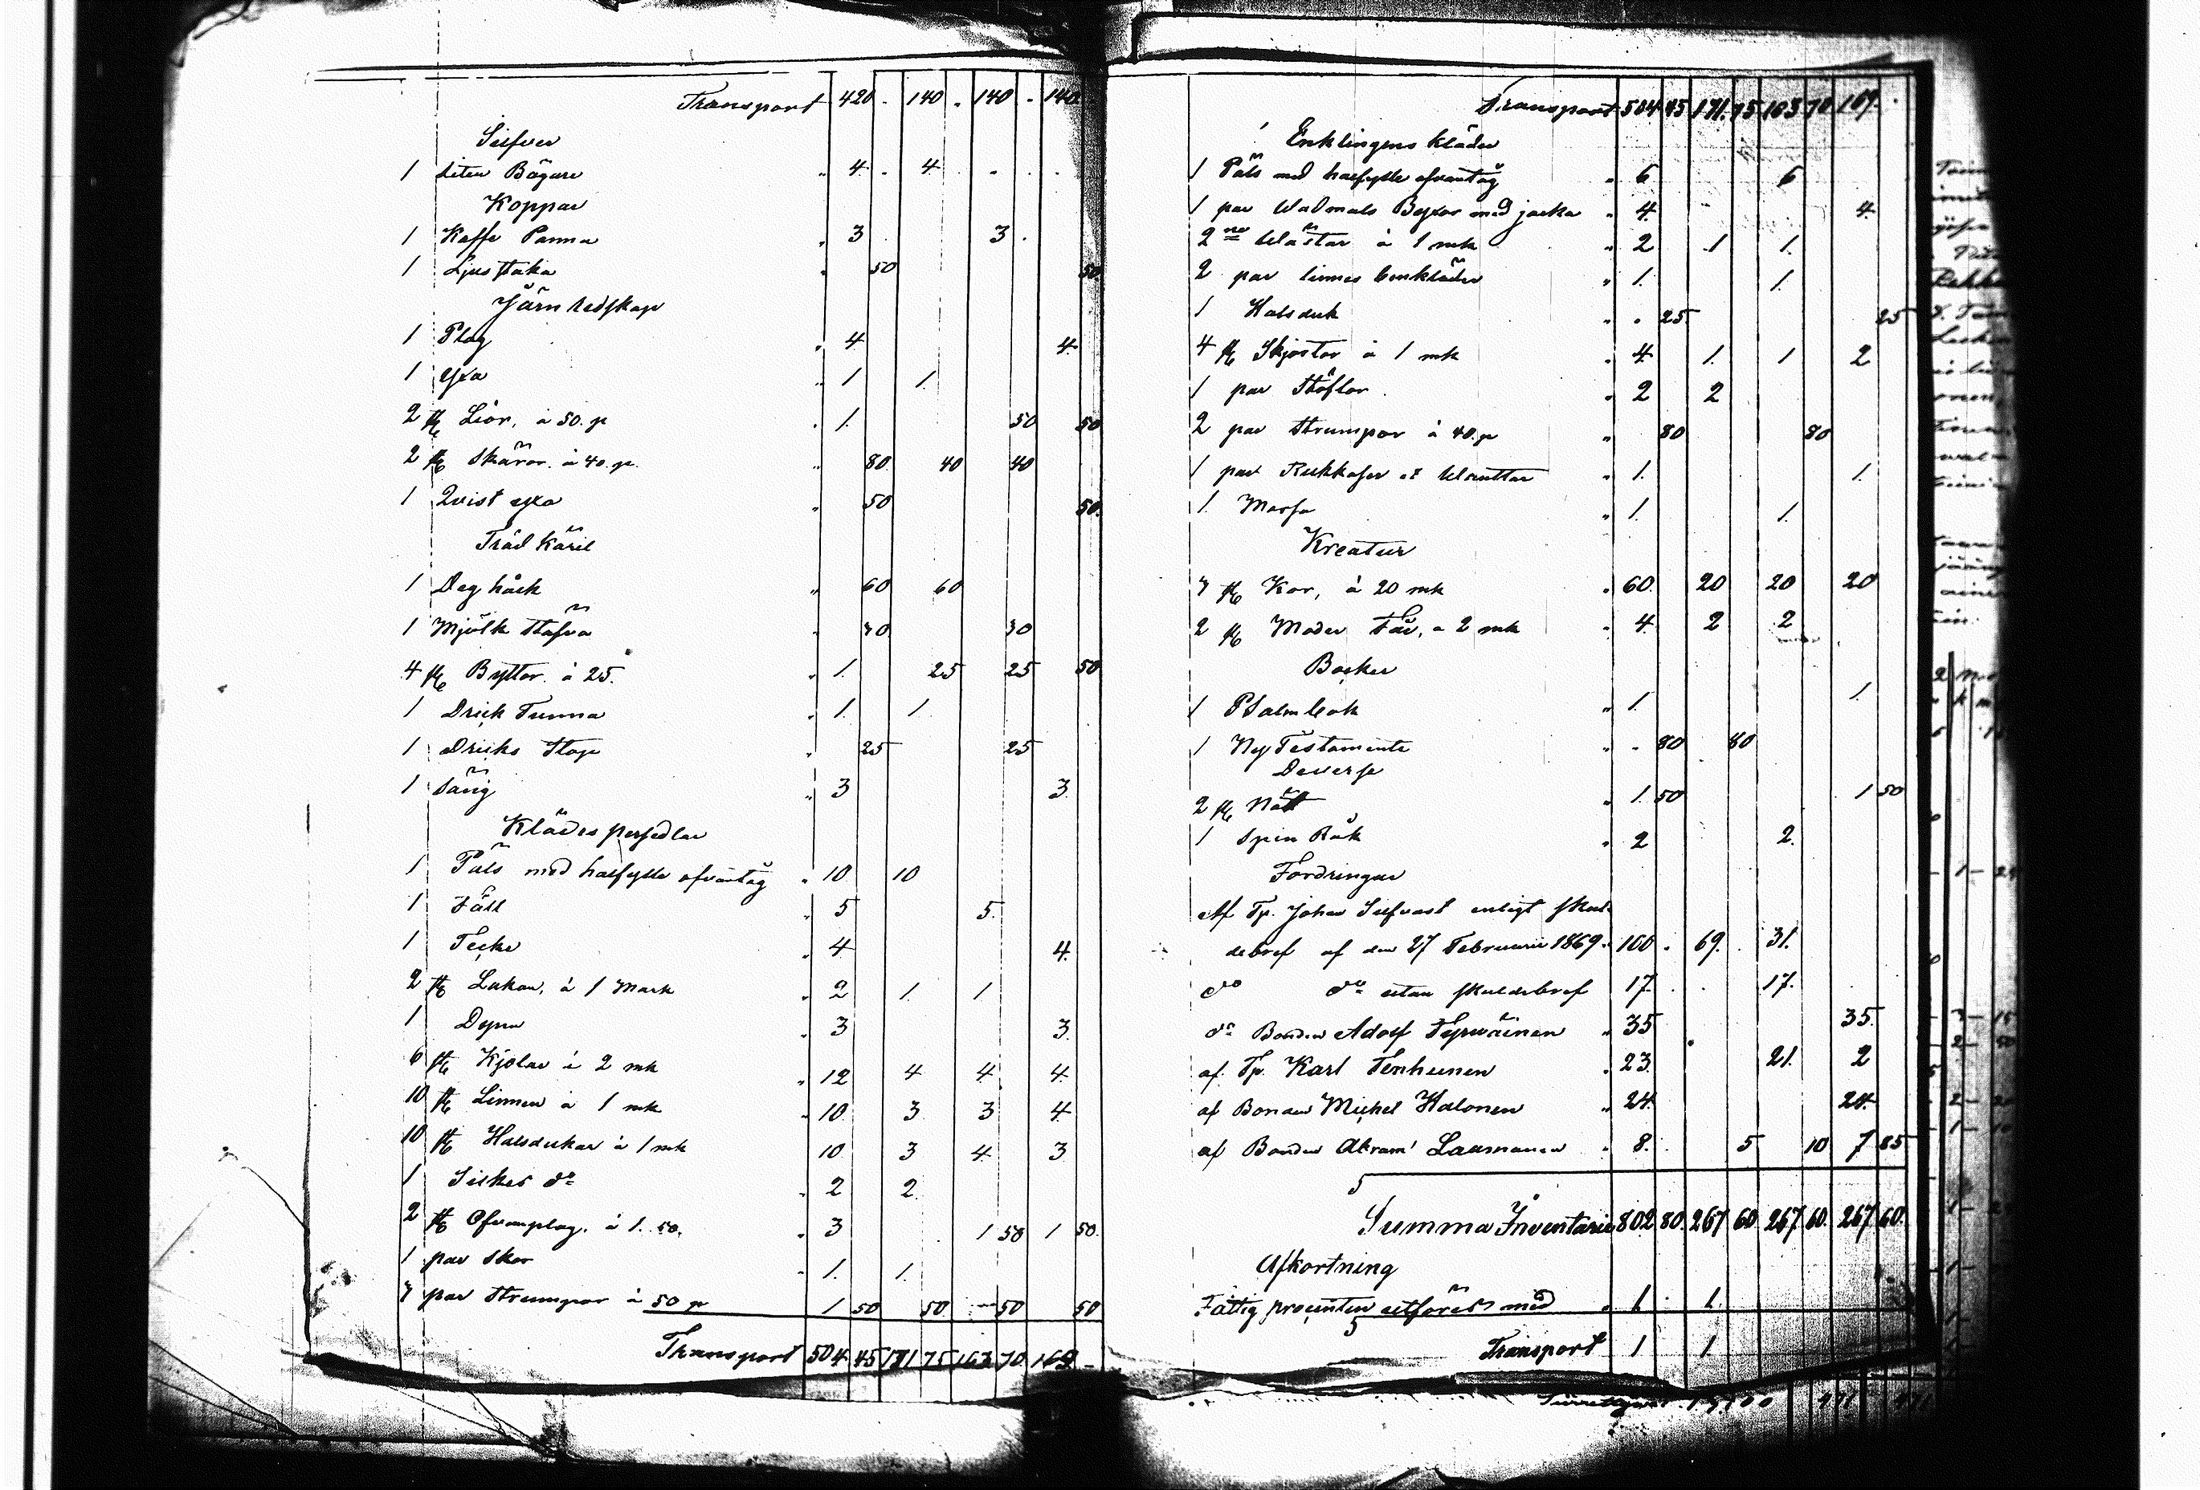 Transport 420 . 140 . 140 . 140
Silfver
1 Liten Bägare " 4 . 4 . . .
Koppar
1 Kaffe Panna " 3 . 3 .
1 Ljusstaka " 50 50
Järn redskap
1 Plog " 4 4
1 Yxa " 1 1.
2 st Liör, à 50. p " 1. 50 50
2 st Skäror. à 40. p. " 80 40 40
1 Qvist yxa " 50 50.
Träd Käril
1 Deg håck " 60 60
1 Mjölk Stäfva " 30 30
4 st Byttor. à 25. " 1. 25 25 50
1 Drick Tunna " 1. 1
1 Dricks Stop " 25 25
1 Säng " 3 3.
Klädes persedlar
1 Päls med halfylle öfvertåg " 10 10
1 Fäll " 5 5.
1 Täcke " 4 4.
2 st Lakan, à 1 Mark " 2 1. 1
1 Dyna " 3 3.
6 st Kjolar à 2 mk " 12 4 4. 4.
10 st Linnen à 1 mk " 10. 3 3 4.
10 st Halsdukar à 1 mk 10 3 4. 3
1 Silkes do " 2 2.
2 st Ofvanplag. à 1. 50. " 3 1 50 1 50.
1 par Skor " 1. 1.
3 par Strumpor à 50 p 1 50 50 50 50
Transport 504 45 171 75 163 70. 169 -
Transport 504 45 171. 75 163 70 169.
Enklingens Kläder
1 Päls med halfylle öfvertåg " 6 6
1 par Wadmals Byxor med jacka " 4. 4.
2 ne Wästar à 1 mk " 2 1 1.
2 par linnes benkläder " 1. 1.
1 Halsduk " . 25. 25
4 st Skjortor à 1 mk " 4 1. 1 2
1 par Stöflor. " 2 2
2 par Strumpor à 40. p " 80 80
1 par Rukkaser et Wanttar " 1. 1.
1. Mössa " 1. 1.
Kreatur
3 st Kor, à 20 mk " 60. 20 20 20
2 st Moder Får, à 2 mk " 4. 2 2
Böcker
1 Psalmbok " 1. 1.
1 Ny Testamente " . 80 80
Diverse
2 st Nätt " 1. 50 1 50
1 Spin Råk " 2 2.
Fordringar
Af Tp. Johan Silfvast enligt skul-
debref af den 27 Februarii 1869. 100 . 69. . 31.
do do utan skuldebref 17. . . 17.
do Bonden Adolf Tyrwäinen " 35 35.
af Tp. Karl Tenhunen " 23. 21. 2
af Bonden Michel Halonen " 24. 24.
af Bonden Abram Laamanen " 8. 5 10 7 85
Summa Inventarii 802 80. 267 60 267 60. 267 60.
Afkortning
Fattig procenten utföres med " 1 . 1.
Transport 1 1.